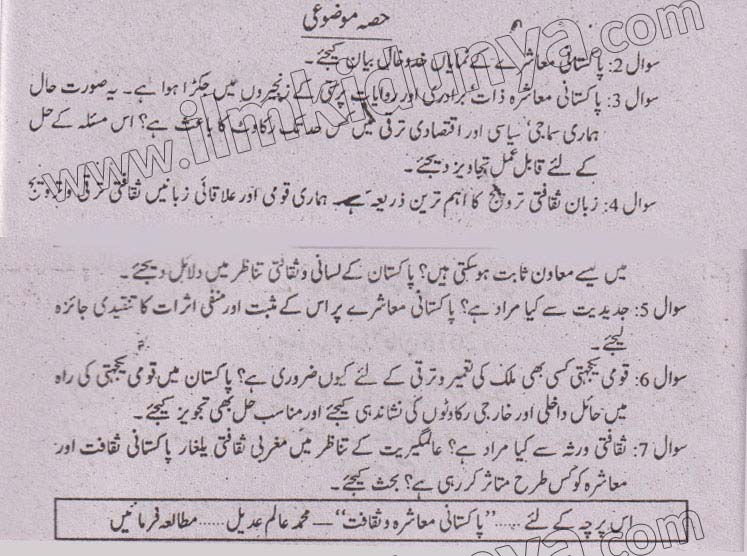 حصہ موضوعی
سوال 2: پاکستانی معاشرے کے نمایاں خدوخال بیان کیجئے۔
سوال 3: پاکستانی معاشرہ ذات برادری اور روایات پرستی کے زنجیروں میں جکڑا ہوا ہے۔ یہ صورت حال
ہماری سماجی سیاسی اور اقتصادی ترقی میں کس حد تک رکاوٹ کا باعث ہے؟ اس مسئلہ کے حل
کے لئے قابل عمل تجاویز دیجئے۔
سوال 4: زبان ثقافتی ترویج کا اہم ترین ذریعہ ہے۔ ہماری قومی اور علاقائی زبانیں ثقافتی ترقی و ترویج
میں کیسے معاون ثابت ہوسکتی ہیں؟ پاکستان کے لسانی و ثقافتی تناظر میں دلائل دیجئے۔
سوال 5: جدیدیت سے کیا مراد ہے؟ پاکستانی معاشرے پر اس کے مثبت اور منفی اثرات کا تنقیدی جائزہ
لیجئے۔
سوال 6: قومی یکجہتی کسی بھی ملک کی تعمیر و ترقی کے لئے کیوں ضروری ہے؟ پاکستان میں قومی یکجہتی کی راہ
میں حائل داخلی اور خارجی رکاوٹوں کی نشاندہی کیجئے اور مناسب حل بھی تجویز کیجئے۔
سوال 7: ثقافتی ورثہ سے کیا مراد ہے؟ عالمگیریت کے تناظر میں مغربی ثقافتی یلغار پاکستانی ثقافت اور
معاشرہ کو کس طرح متاثر کر رہی ہے؟ بحث کیجئے۔
اس پرچہ کے لئے ...... "پاکستانی معاشرہ و ثقافت" — محمد عالم عدیل ...... مطالعہ فرمائیں
www.ilmkidunya.com
www.ilmkidunya.com